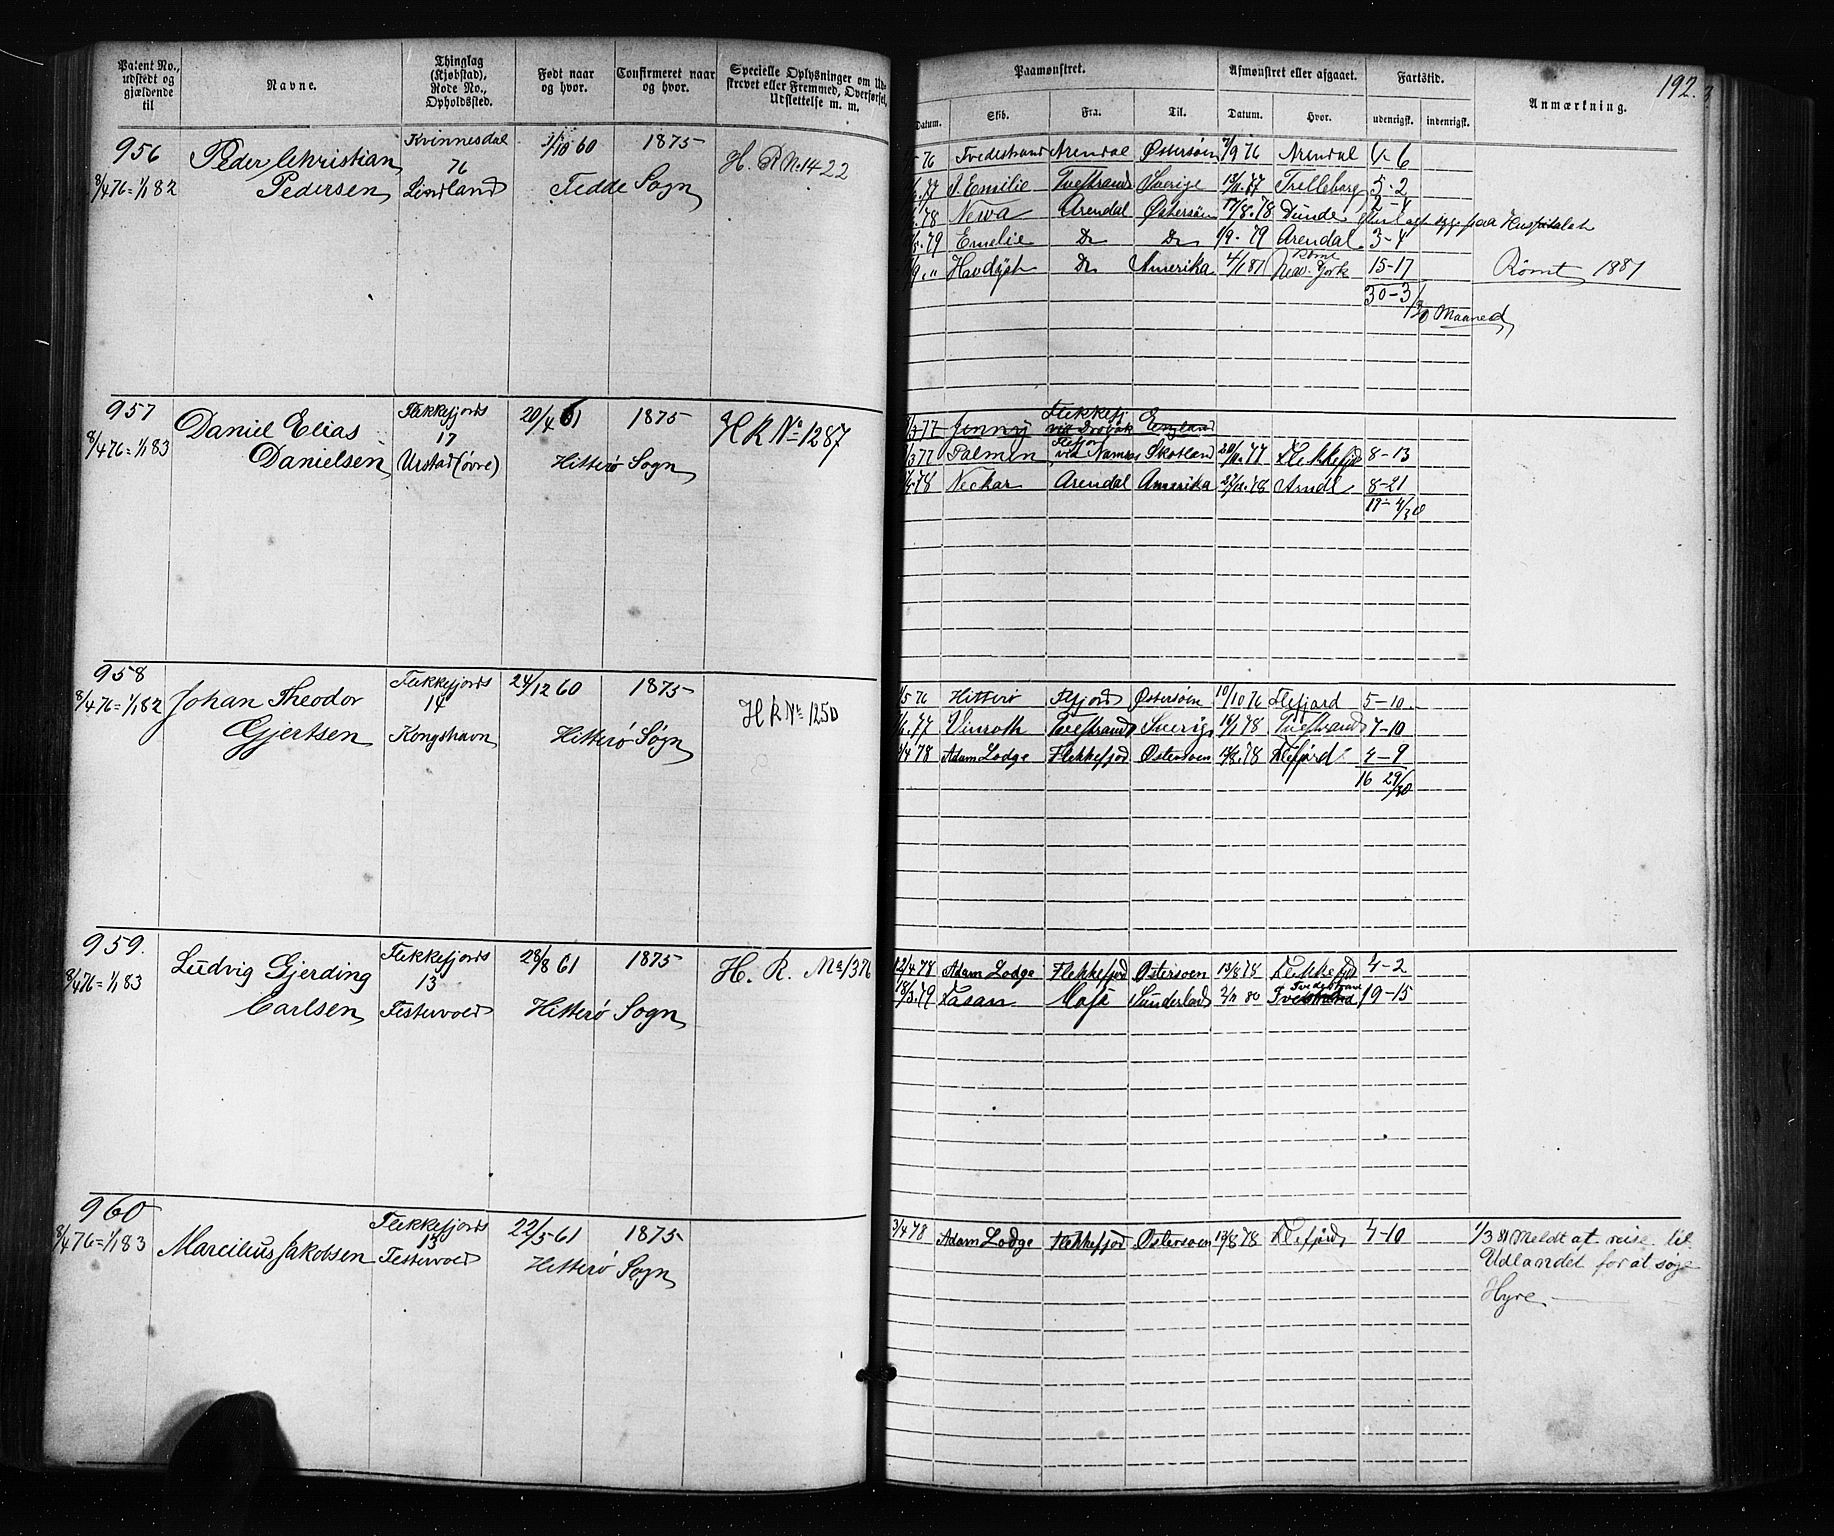 192.
Patent No., udstedt og gjældende til
Navne.
Thinglag (Kjøbstad), Rode No., Opholdssted.
Født naar og hvor.
Confirmeret naar og hvor.
Specielle Oplysninger om Udskrevet eller Fremmed, Overførsel, Udslettelse m. m.
Paamønstret.
Afmønstret eller afgaaet.
Fartstid.
Anmærkning.
Datum. Skib. Fra. Til. Datum. Hvor. udenrigst. indenrigst.
956 Kvinnesdal 3/10 60 1875
Peder Christian 76 H. R. No. 1422
8/4 76 = 1/1 82 Pedersen Lindland Fedde Sogn
76 Tvedestrand Arendal Østersøen 7/9 76 Arendal 4-6
77 Emilie Tvestrand Sverige 77 Trelleborg 5-2
78 Newa Arendal Østersøen 17/8 78 2-4 paa Huspitalet
79 Emelie Do Do 1/9 79 Arendal 3-4
" Amerika 4/1 81 Rømt New. York 15-17 Rømt 1881
30-3/30 Maaned
957 Flekkefjords 20/4 61 1875
Daniel Elias 17 H R No 1287
8/4 76 = 1/1 83 Danielsen Urstad (øvre) Hitterø Sogn
77 Jenny Flekkefj via England
77 Palmen via Skotland 77 Flekkefjd 8-13
78 Neckar Arendal Amerika 78 Arndl 8-21
958 Flekkefjords 24/12 60 1875
Johan Theodor 14 H R No 1250
8/4 76 = 1/1 82 Gjertsen Kongshavn Hitterø Sogn
/5 76 Hitterø Flfjord Østersøen 10/10 76 Flefjord 5-10
77 Vinroth Tvestrand Sverig 78 Tvestrand 7-10
/4 78 Adam Lodge Flekkefjod Østersøen /8 78 Flefjord 4-9
16 29/30
959. Flekkefjords 28/8 61 1875
Ludvig Gjerding 13 H. R. No 1376
8/4 76 = 1/1 83 Carlsen Festervold Hitterø Sogn
12/4 78 Adam Lodge Flekkefjod Østersøen /8 78 Flekkefjd 4-2
18/3 79 Sunderland 80 Tvedestrand 19-15
960 Flekkefjords 22/5 61 1875
8/4 76 = 1/1 83 Marcilius Jakobsen 13 Festervold Hitterø Sogn
3/4 78 Adam Lodge Flekkefjod Østersøen /8 78 Flefjord 4-10
1/3 81 Meldt at reise til
Udlandet for at søge
Hyre